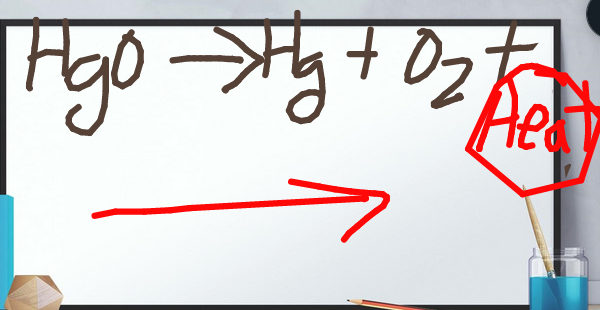 HgO → Hg + O2 +
Heat